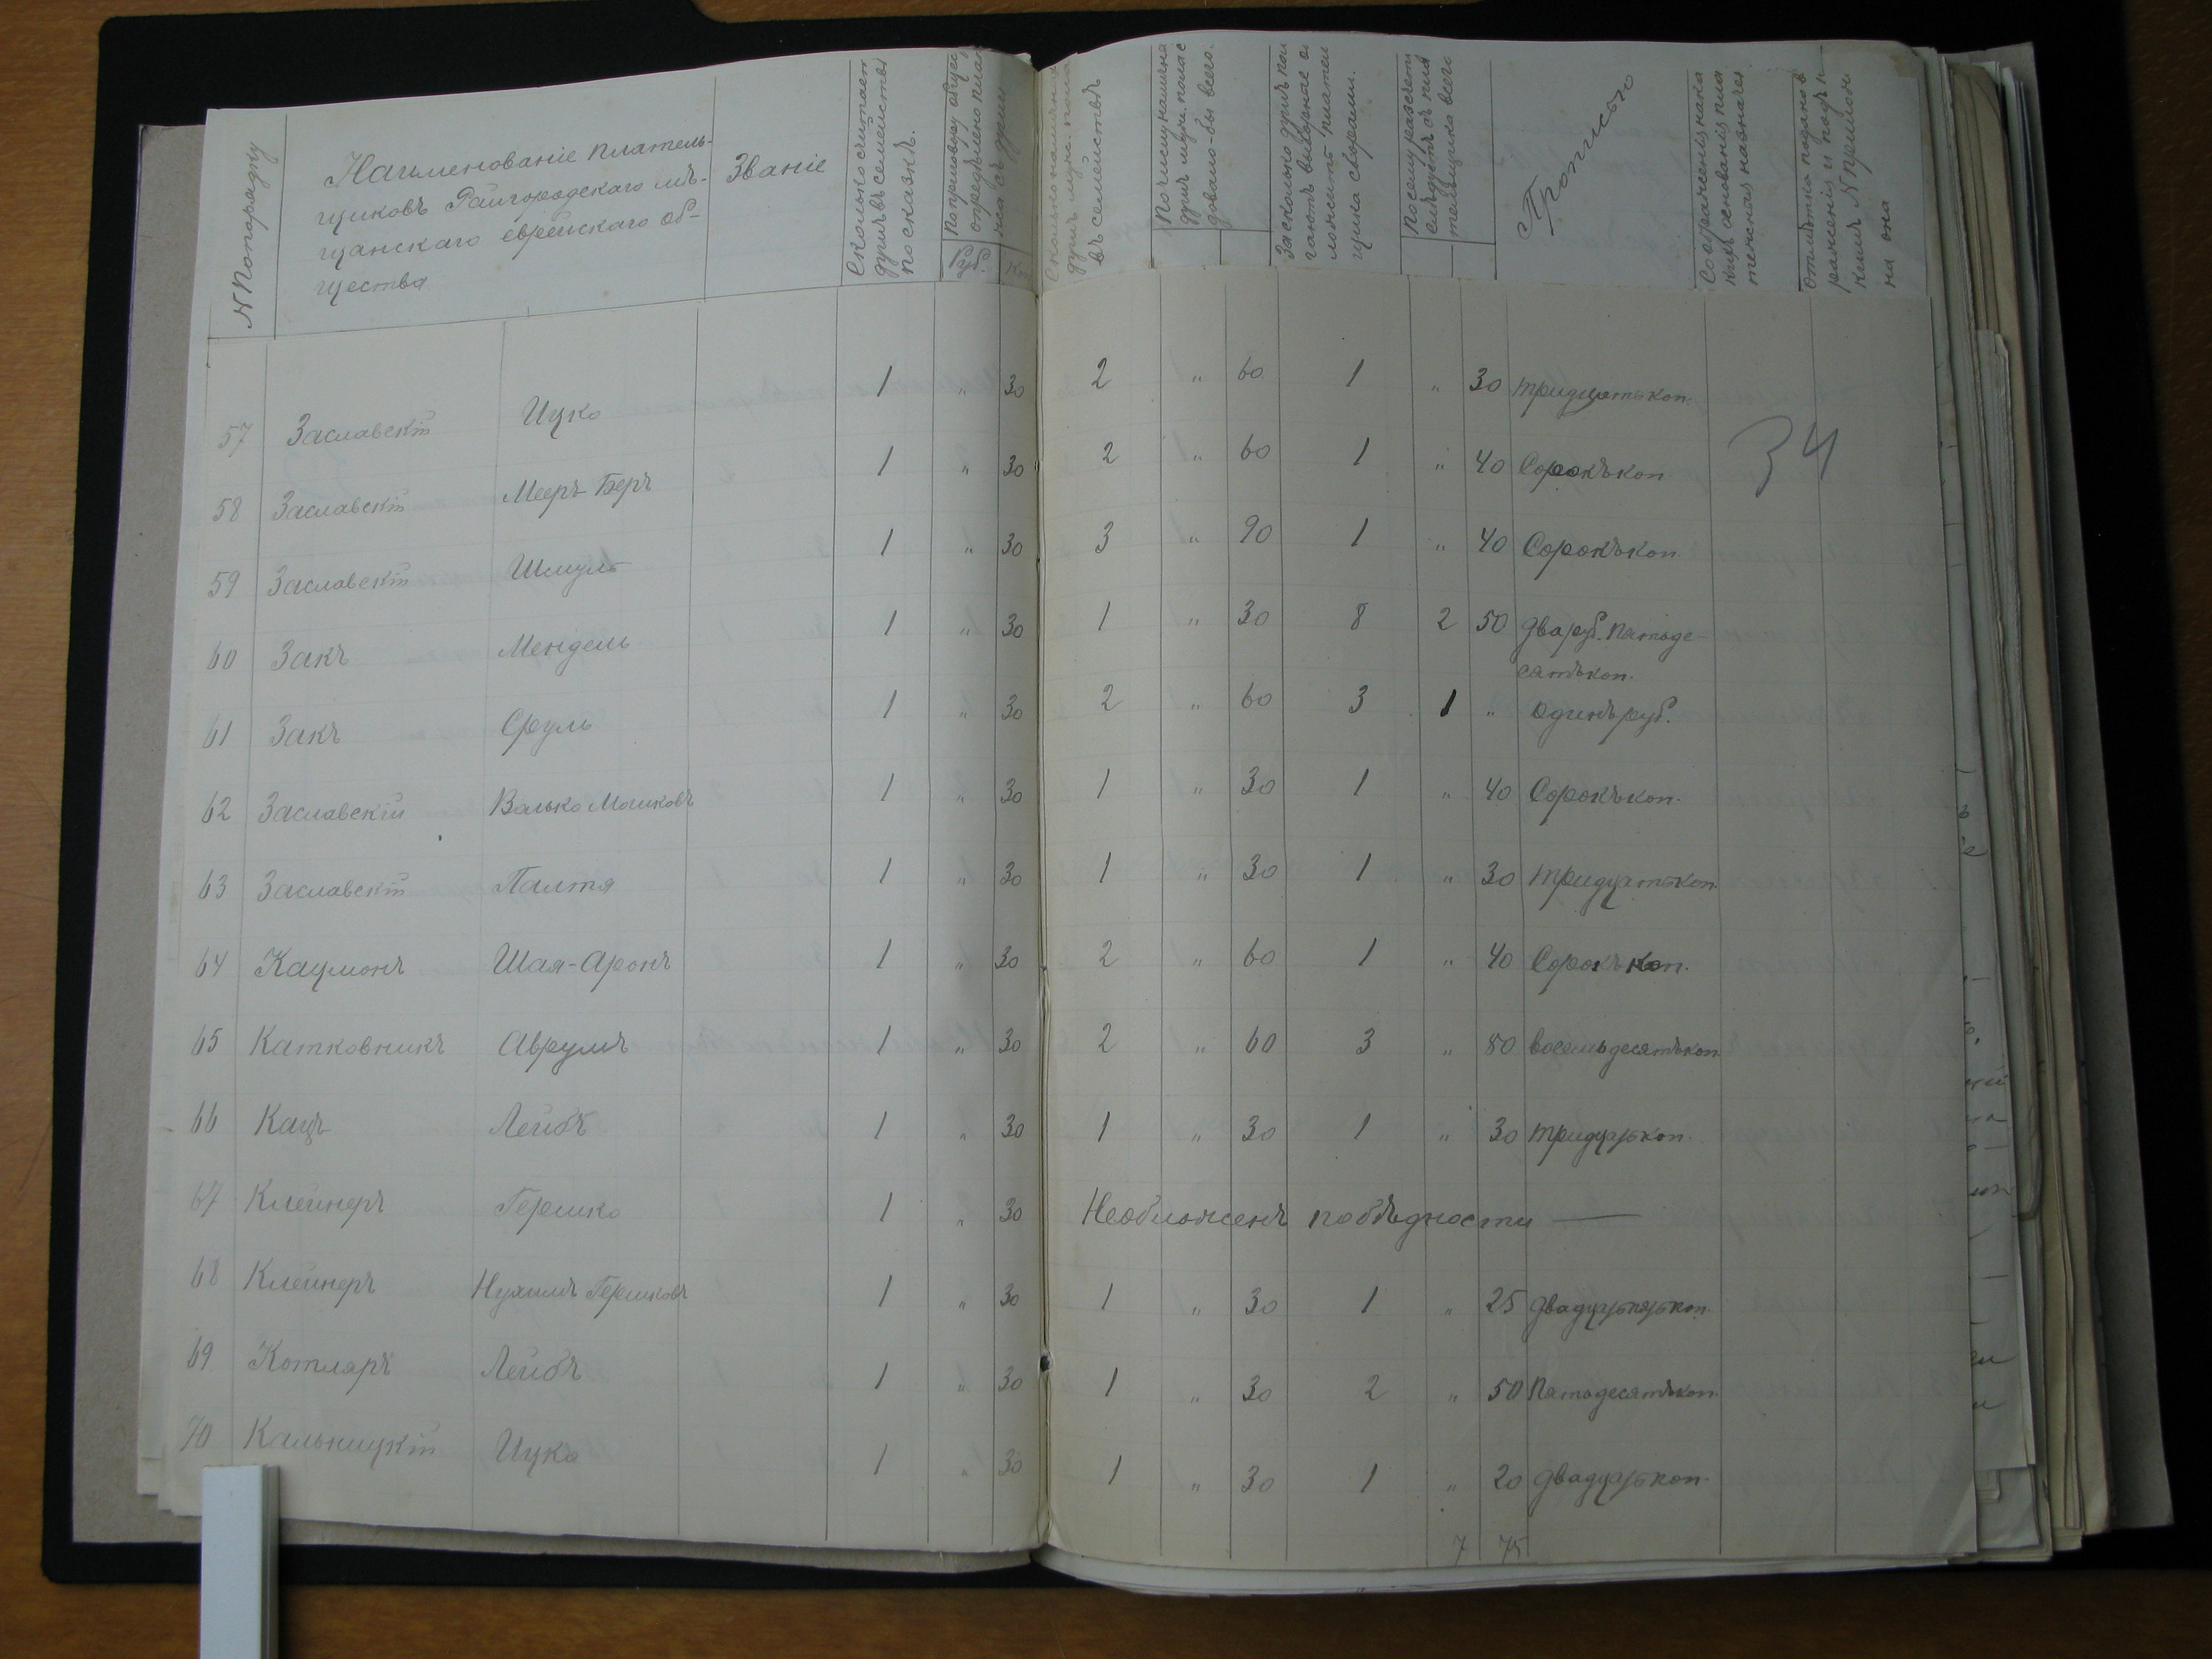 N Попорядку
Наименованіе плательщиковъ Райгородскаго мѣщанскаго еврейскаго общества
Званіе
Сколько считает душъ въ семействѣ по сказкѣ.
По приговору общес опредѣлено
Руб. Коп
душъ въ семействѣ
По сему наличн душъ следовало-бы всего.
За сколько душъ
щика сборами.
По сему разсчет слѣдуетъ съ плательщика всего
Прописью
Соображенія на основанія
Отмѣтка
57 Заславскій Ицко 1 „ 30 2 „ 60 1 „ 30 тридцать коп.
58 Заславскій Мееръ-Беръ 1 „ 30 2 „ 60 1 „ 40 Сорокъ коп
34
59 Заславскій Шмуль 1 „ 30 3 „ 90 1 „ 40 Сорокъ коп.
60 Закъ Мендель 1 „ 30 1 „ 30 8 2 50 два руб. пятьде-
сятъ коп.
61 Закъ Сруль 1 „ 30 2 „ 60 3 1 „ одинъ руб.
62 Заславскій Волько Мошковъ 1 „ 30 1 „ 30 1 „ 40 Сорокъ коп.
63 Заславскій Палтя 1 „ 30 1 „ 30 1 „ 30 тридцать коп.
64 Кацмонъ Шая-Аронъ 1 „ 30 2 „ 60 1 „ 40 Сорокъ коп.
65 Катковникъ Аврумъ 1 „ 30 2 „ 60 3 „ 80 восемьдесятъ коп
66 Кацъ Лейбъ 1 „ 30 1 „ 30 1 „ 30 тридцать коп.
67 Клейнеръ Гершко 1 „ 30 Необложенъ по бѣдности —
68 Клейнеръ Нухимъ Гершковъ 1 „ 30 1 „ 30 1 „ 25 двадцать пять коп.
69 Котляръ Лейбъ 1 „ 30 1 „ 30 2 „ 50 Пятьдесятъ коп.
70 Кальницкій Ицко 1 „ 30 1 „ 30 1 „ 20 двадцать коп.
7 75